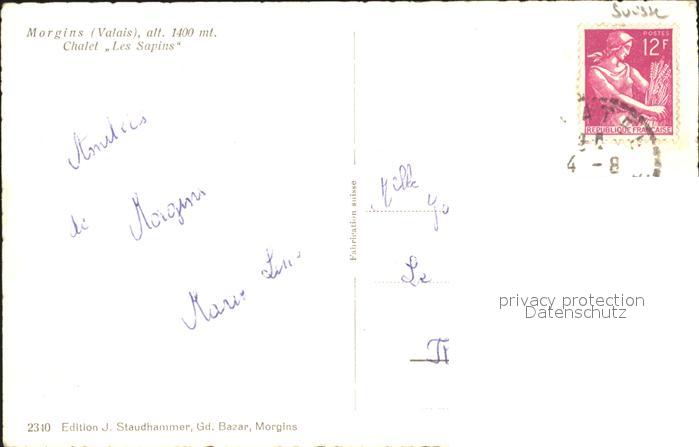 Suisse
Morgins (Valais), alt. 1400 mt.
Chalet „Les Sapins“
POSTES
12F
REPUBLIQUE FRANÇAISE
4 - 8
Amitiés
de Morgins
Marie
Fabrication suisse
Melle
Le
privacy protection
Datenschutz
2310 Edition J. Staudhammer, Gd. Bazar, Morgins